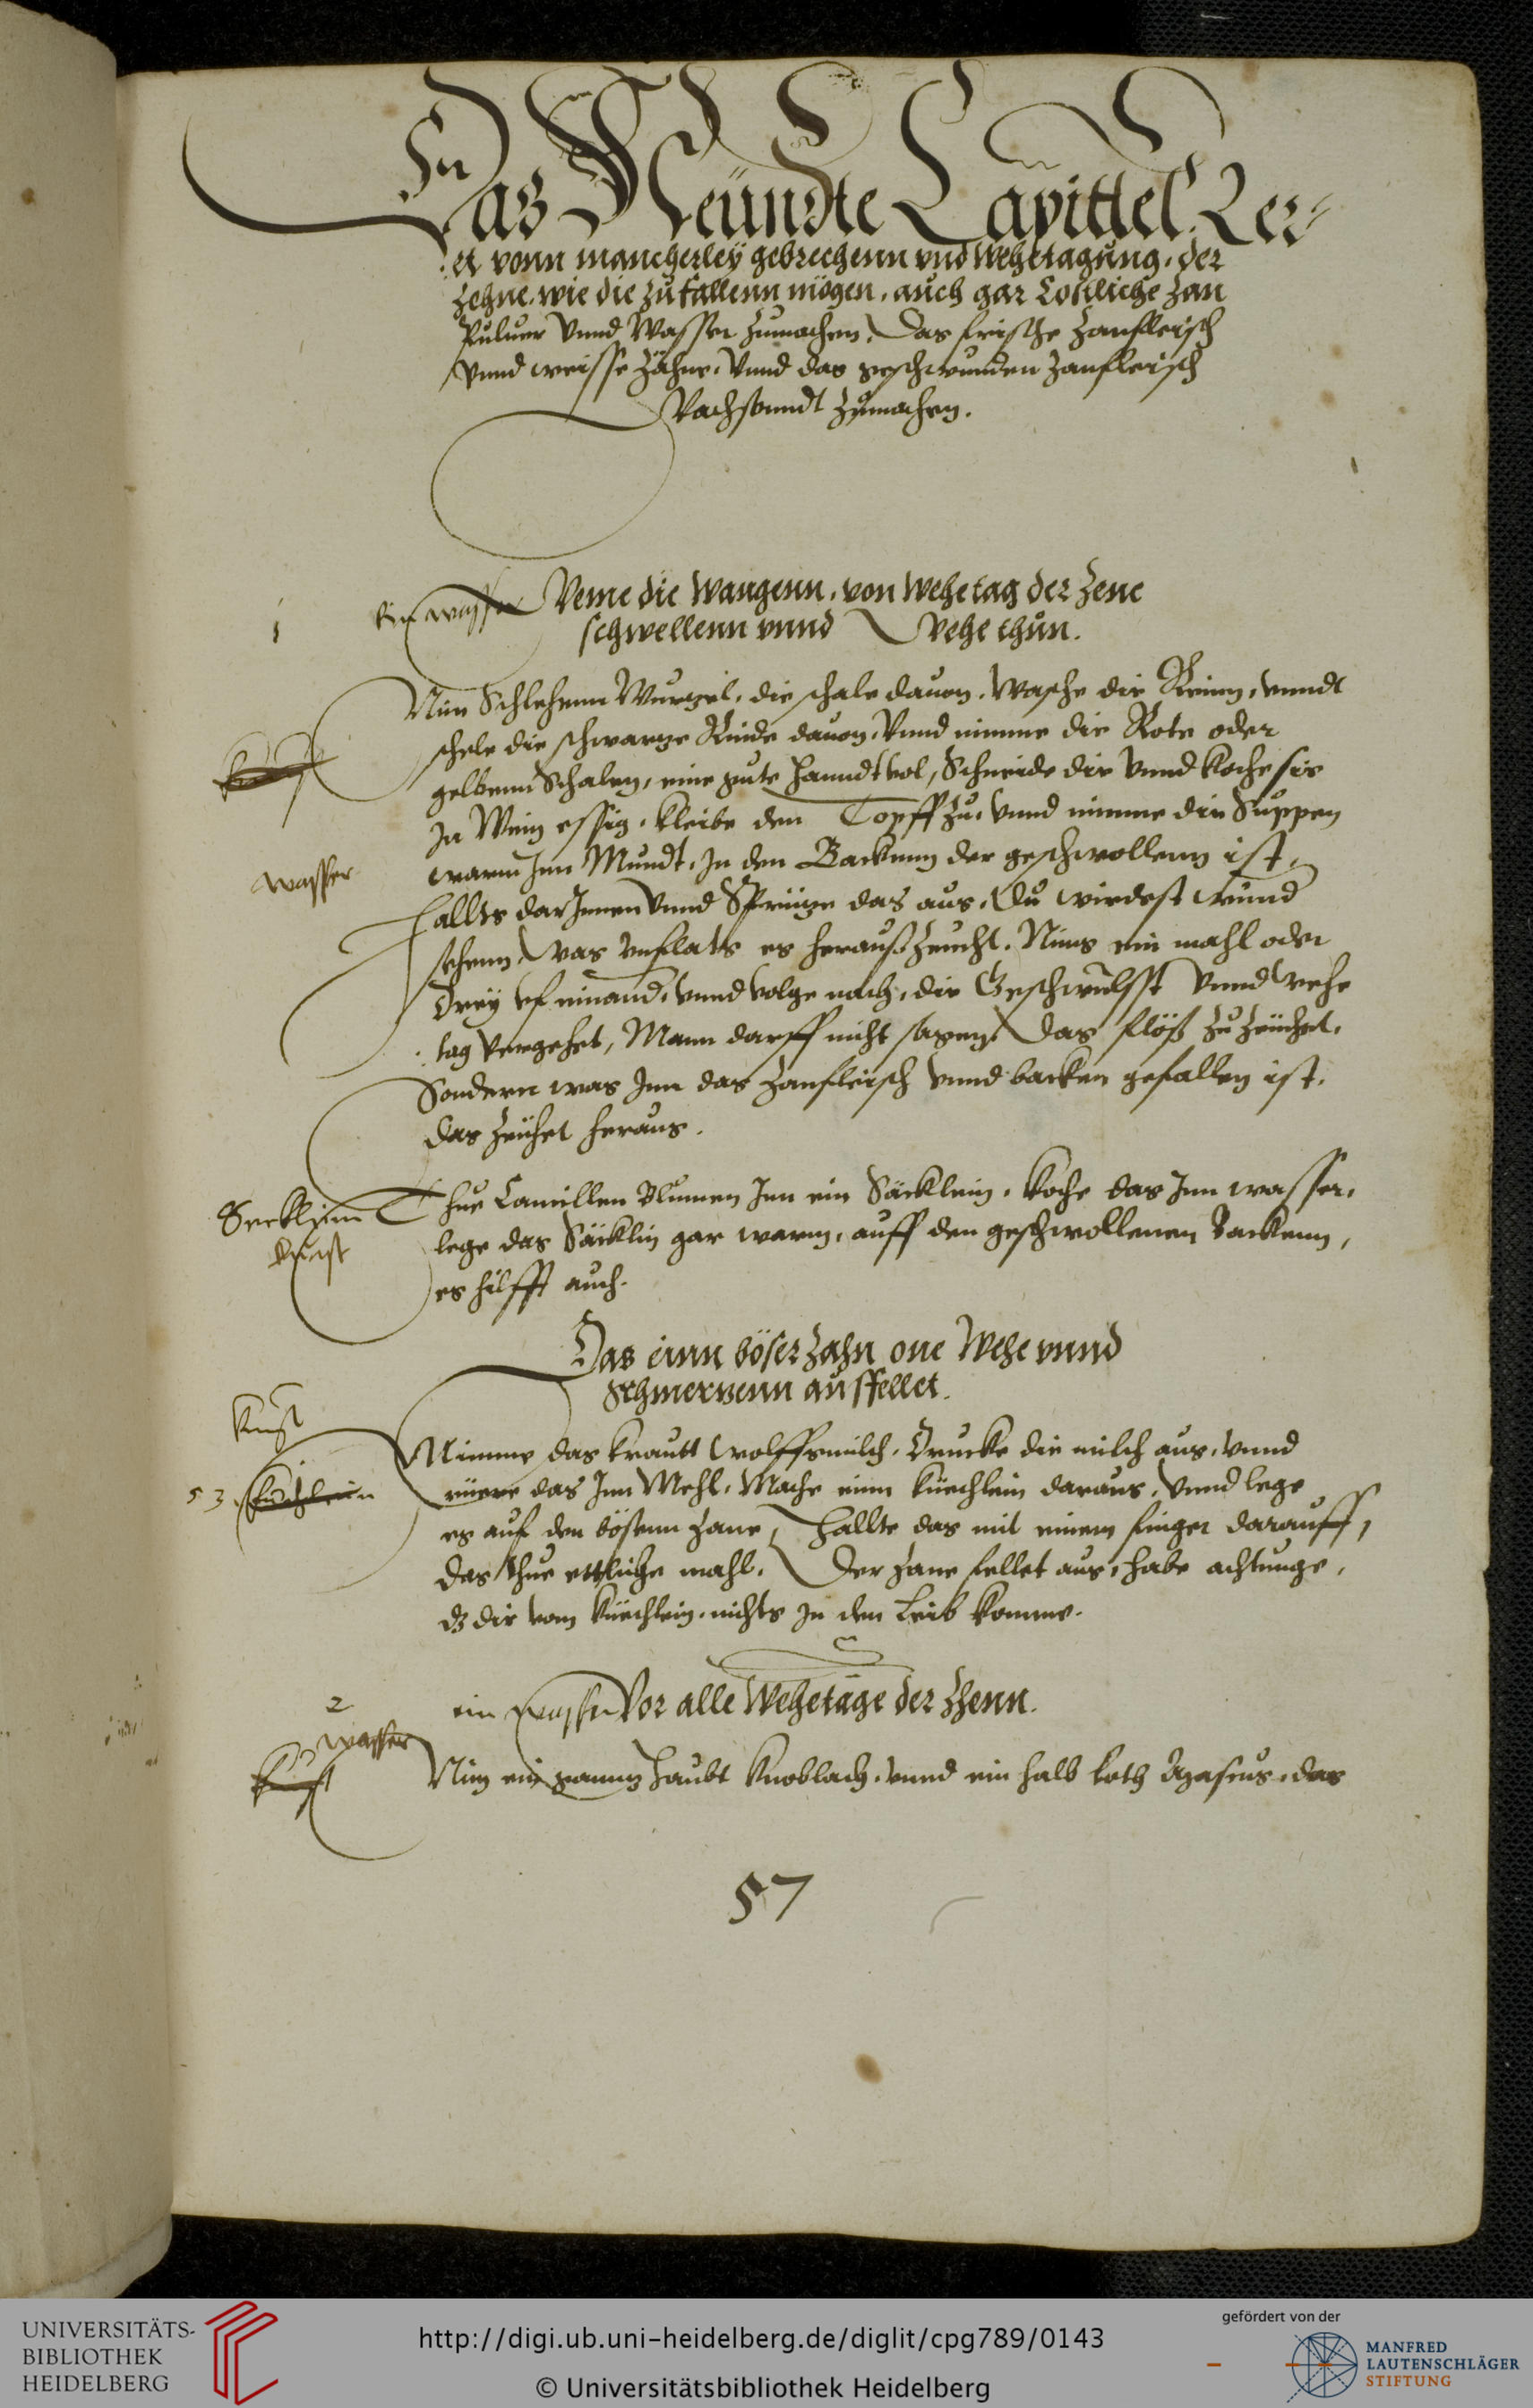 Das Neündte Capittel. Ler-
et vonn mancherleÿ gebrechenn vnd Wehetagung, der
Zehne, wie die Zufallenn mögen, auch gar Costliche Zan
Puluer Vnnd Wasser Zumachen, Das frische Zanfleisch
Vnnd weisse Zähne, Vnnd das geschwunden Zanfleisch
Wachssenndt Zumachen.
1
Ein wasser Weme die Wangenn, von Wehetag der Zene
schwellenn vnnd Wehe thun.
Nim Schlehenn Wurzel, die schale dauon, Wasche die Reinn, vnndt
schele die schwarze Rinde dauon, Vnnd nimme die Rote oder
gelbenn Schalen, eine gute Hanndt vol, Schneide die Vnnd Koche sie
Kunst
In Wein essig, kleibe den Topff Zu, Vnnd nimme die Suppen
warm Inn Mundt, In den Backenn der geschwollenn ist,
wasser
Hallts dar Innen Vnnd Sprüze das aus, Du wirdest wund
sehenn, Was vnflats es herauß Zeucht. Nims ein mahl oder
Dreÿ vf einand, vnnd volge nach, die Geschwulsst Vnnd wehe
tag Vergehet, Mann darff nicht sagen, Das flöß Zu Zeuhet,
Sondern was Inn das Zanfleisch Vnnd backen gefallen ist,
das Zeühet heraus.
Thue Camillen Blumen Inn ein Säcklein, Koche das Inn wasser,
Kunst
lege das Säcklin gar warm, auff den geschwollenen Backenn,
es hilfft auch.
Das einn böser Zahn one Wehe vnnd
Schmerzenn ausfellet.
Kunst
Nimme das krautt Wolffsmilch, Drucke die milch aus, Vnnd
53 Küchlein
rüere das Inn Mehl, Mache einn küechlein daraus, Vnnd lege
es auf den bösenn Zane, Hallte das mit einem finger darauff,
das thue ettliche mahl, Der Zane fellet aus, habe achtunge,
dz dir vom küechlein, nichts In den Leib komme.
2
ein wasser Vor alle Wehetage der Zhenn.
wasser
Kunst
Nim ein gannz Haubt Knoblach, vnnd ein halb loth das
57
UNIVERSITÄTS-
BIBLIOTHEK
HEIDELBERG
http://digi.ub.uni-heidelberg.de/diglit/cpg789/0143
© Universitätsbibliothek Heidelberg
gefördert von der
MANFRED
LAUTENSCHLÄGER
STIFTUNG